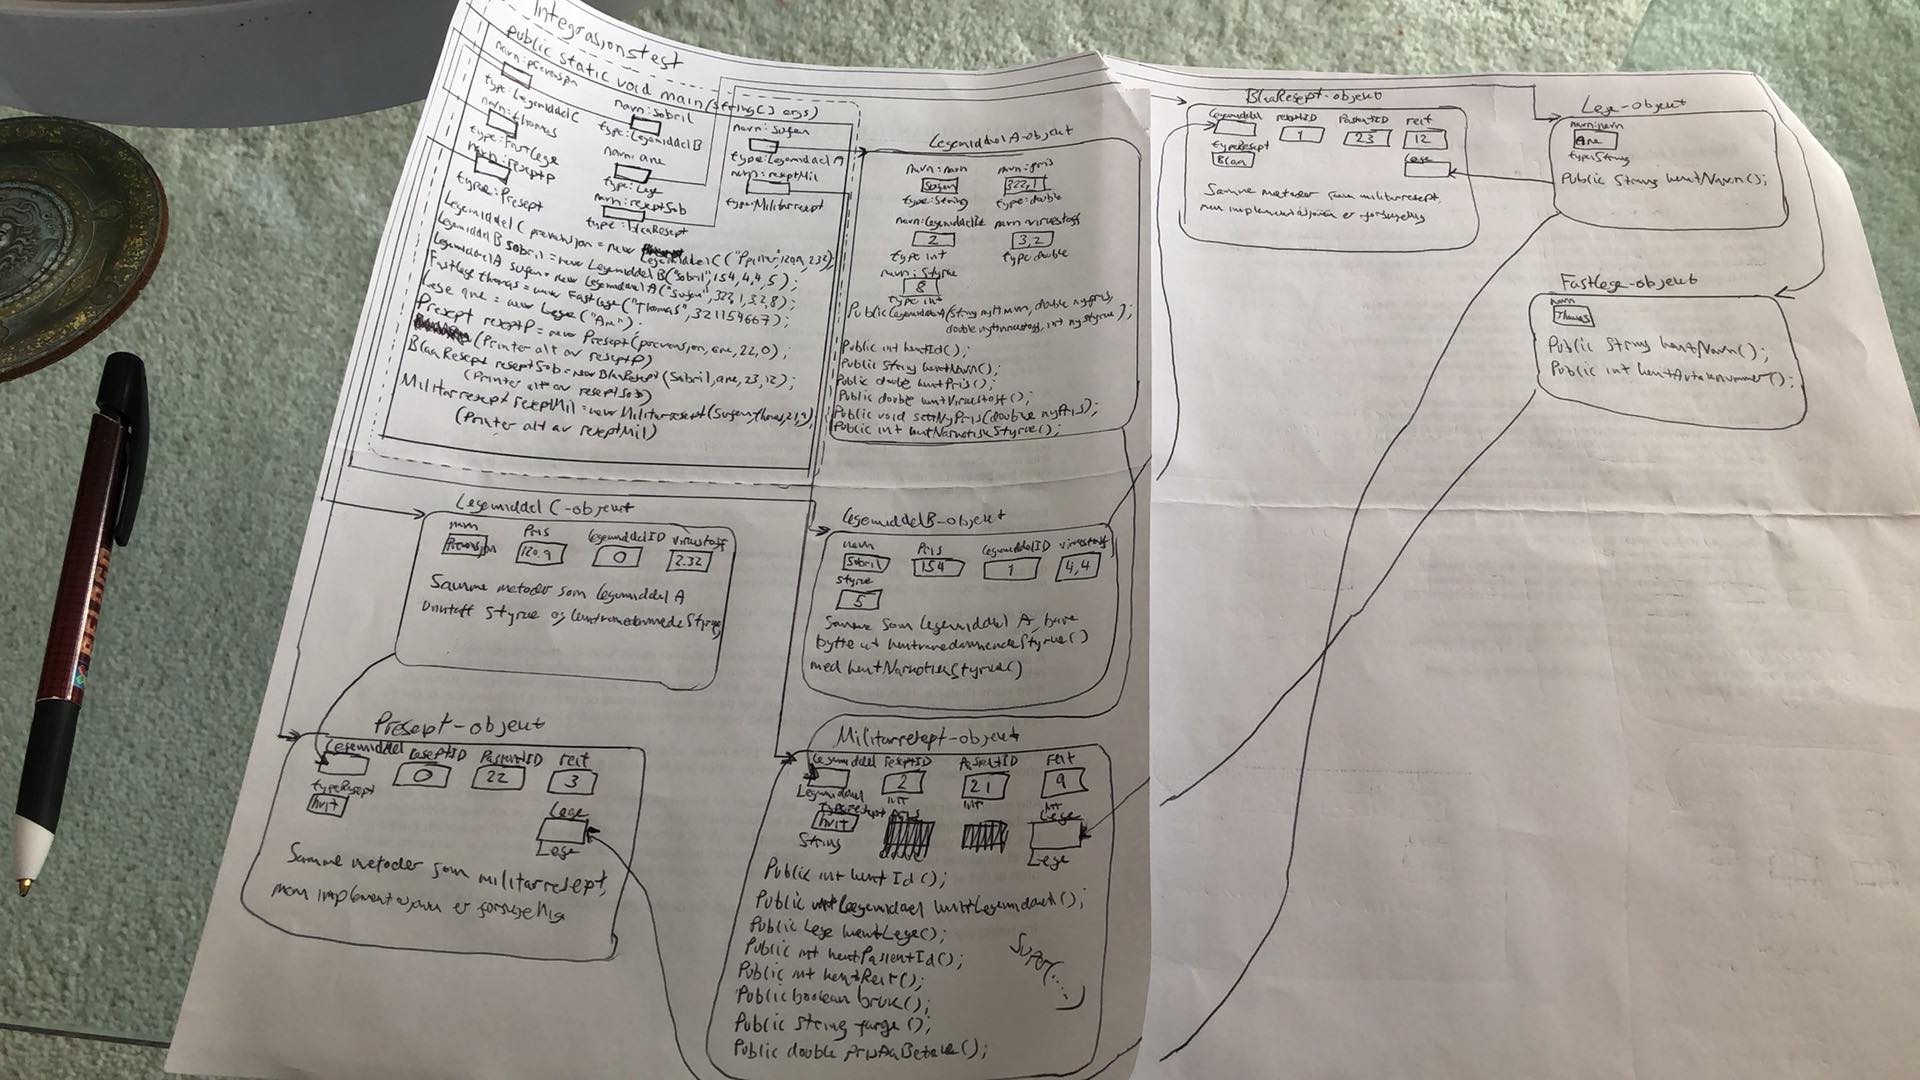 Integrasjonstest
public static void main(String[] args)
navn: prevensjon
type: LegemiddelC
navn: Sobril
type: LegemiddelB
navn: Sugen
type: LegemiddelA
navn: thomas
type: FastLege
navn: ane
type: Lege
navn: reseptMil
type: Militarresept
navn: reseptP
type: Presept
navn: reseptSob
type: BlaaResept
LegemiddelC prevensjon = new LegemiddelC(
LegemiddelB Sobril = new LegemiddelB("Sobril", 154, 4,4, 5);
LegemiddelA sugen = new LegemiddelA("Sugen", 322,1, 3,2, 8);
FastLege thomas = new FastLege("Thomas", 321154667);
Lege ane = new Lege("Ane").
Presept reseptP = new Presept(prevensjon, ane, 22, 0);
(Printer alt av reseptP)
BlaaResept reseptSob = new BlaaResept(Sobril, ane, 23, 12);
(Printer alt av reseptSob)
Militarresept reseptMil = new Militarresept(Sugen, thomas, 21, 9)
(Printer alt av reseptMil)
LegemiddelA-objekt
navn: navn
Sugen
type: String
navn: pris
322,1
type: double
navn: LegemiddelId
2
type int
navn virkestoff
3,2
type double
navn: Styrke
8
type int
Public LegemiddelA(String nyttnavn, double nypris,
double nyttvirkestoff, int nystyrke);
Public int hentId();
Public String hentNavn();
Public double hentPris();
Public double hentVirkestoff();
Public void settNyPris(double nyPris);
Public int hentNarkotiskStyrke();
BlaaResept-objekt
Legemiddel
reseptID
1
PasientID
23
reit
12
typeResept
Blaa
Lege
Samme metoder som militarresept,
men implementasjonen er forskjellig
Lege-objekt
navn: navn
Ane
type: String
Public String hentNavn();
FastLege-objekt
navn
Thomas
Public String hentNavn();
Public int hentAvtalenummer();
Legemiddel C-objekt
navn
Prevensjon
Pris
120.9
LegemiddelID
0
virkestoff
2.32
Samme metoder som legemiddel A
Unntatt Styrke og
LegemiddelB-objekt
navn
Sobril
Pris
154
LegemiddelID
1
virkestoff
4,4
Styrke
5
Samme som legemiddel A, bare
bytte ut hentvanedannendeStyrke()
med hentNarkotiskStyrke()
Presept-objekt
Legemiddel
ReseptID
0
PasientID
22
reit
3
typeResept
hvit
Lege
Lege
Samme metoder som militarresept,
men implementasjonen er forskjellig
Militarresept-objekt
Legemiddel
Legemiddel
reseptID
2
int
PasientID
21
int
reit
9
int
typeresept
hvit
String
Lege
Lege
Public int hentId();
Public Legemiddel hentLegemiddel();
Public Lege hentLege();
Public int hentPasientId();
Public int hentReit();
Public boolean bruk();
Public String farge();
Public double prisAaBetale();